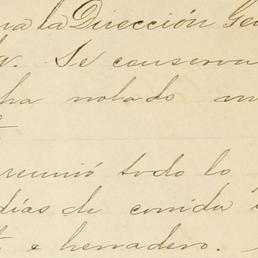 la Dirección Ge
Se conserva
ha notado
reunió todo lo
días de comida
e herradero.